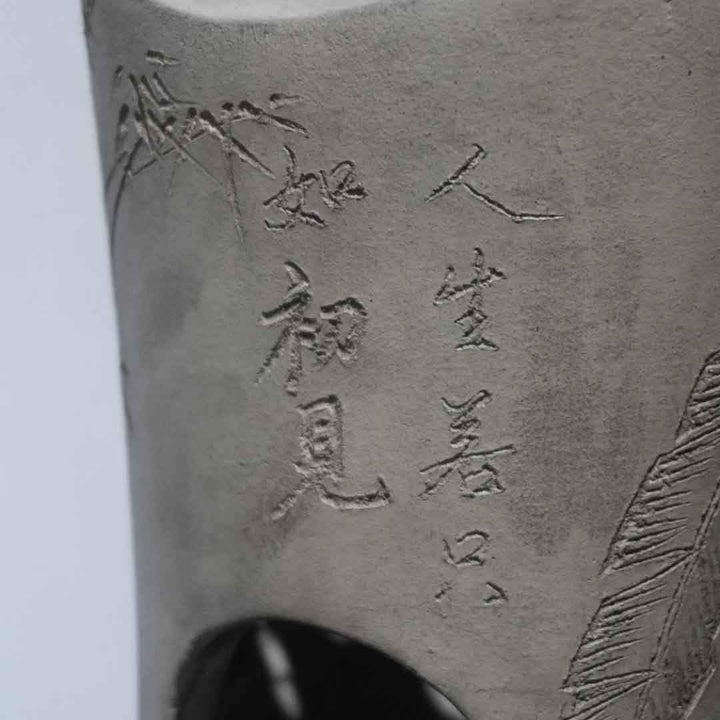 人生若只
如初見